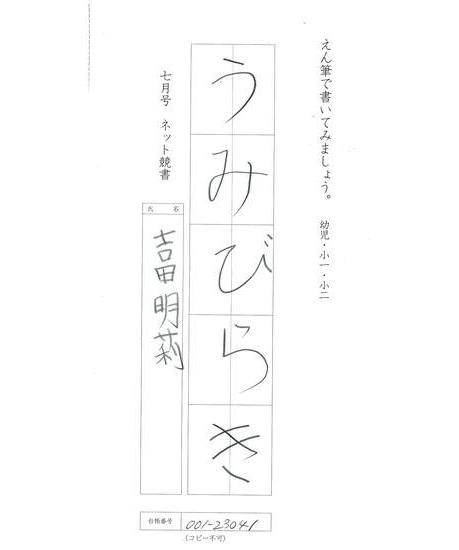 えん筆で書いてみましょう。　幼児・小一・小二
うみびらき
七月号　ネット競書
氏名
吉田明莉
台帳番号 001-23041
(コピー不可)